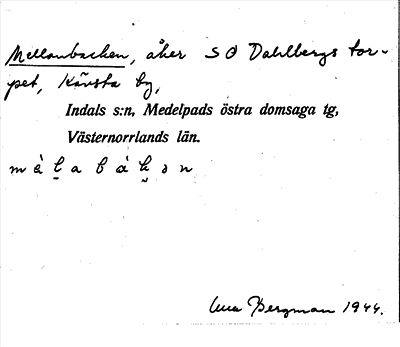 Mellanbacken, åker SO Dahlbergs tor-
pet, Kävsta by,
Indals s:n, Medelpads östra domsaga tg,
Västernorrlands län.
Bergman 1944.